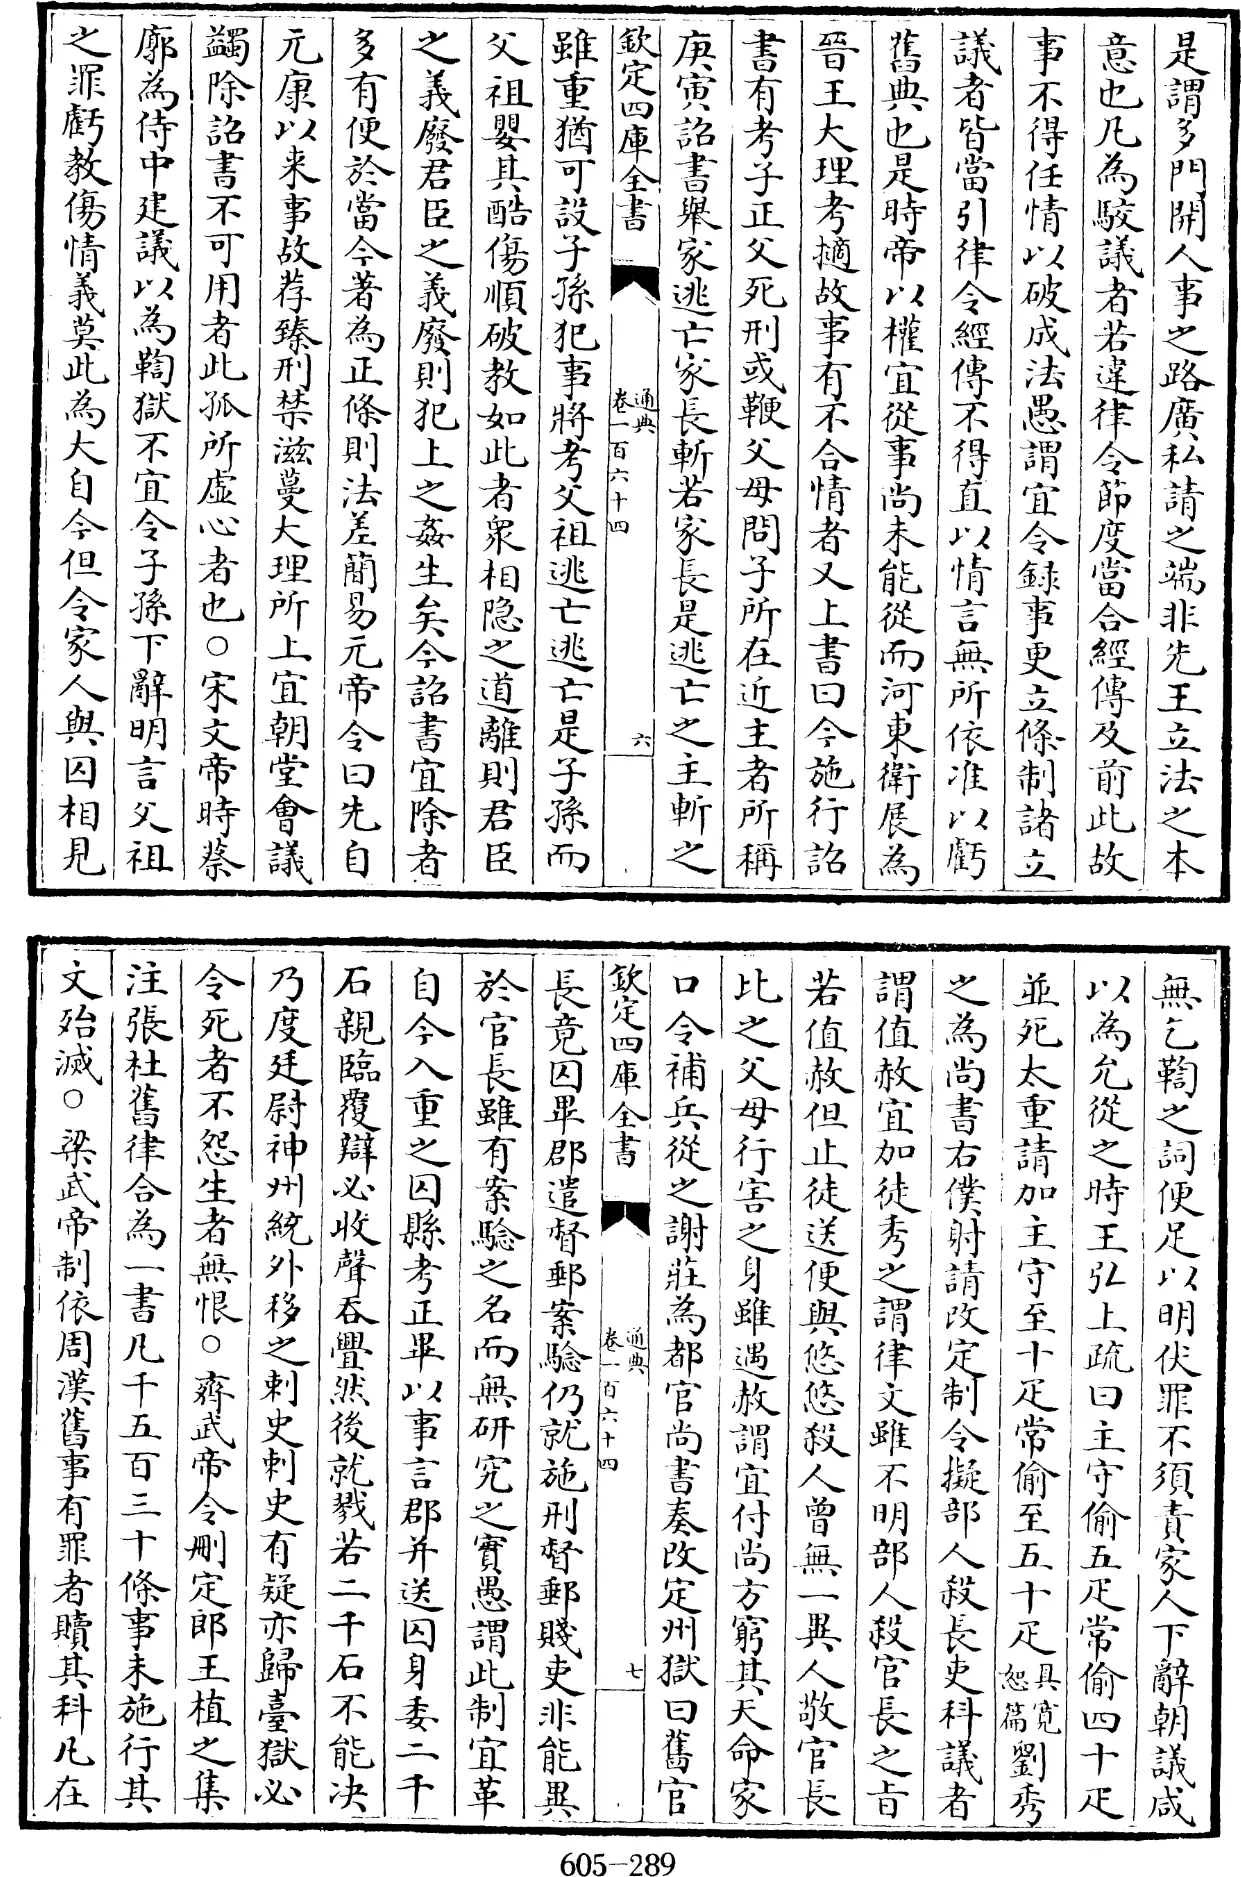 是謂多門開人事之路廣私請之端非先王立法之本
意也凡為駮議者若違律令節度當合經傳及前此故
事不得任情以破成法愚謂宜令録事更立條制諸立
議者皆當引律令經傳不得直以情言無所依准以虧
舊典也是時帝以權宜從事尚未能從而河東衛展為
晉王大理考擿故事有不合情者又上書曰今施行詔
書有考子正父死刑或鞭父母問子所在近主者所稱
庚寅詔書舉家逃亡家長斬若家長是逃亡之主斬之
欽定四庫全書
通典
卷一百六十四
六
雖重猶可設子孫犯事將考父祖逃亡逃亡是子孫而
父祖嬰其酷傷順破教如此者衆相隐之道離則君臣
之義廢君臣之義廢則犯上之姦生矣今詔書宜除者
多有便於當今著為正條則法差簡易元帝令曰先自
元康以来事故荐臻刑禁滋蔓大理所上宜朝堂會議
蠲除詔書不可用者此孤所虚心者也○宋文帝時蔡
廓為侍中建議以為鞫獄不宜令子孫下辭明言父祖
之罪虧教傷情義莫此為大自今但令家人與囚相見
無乞鞫之詞便足以明伏罪不須責家人下辭朝議咸
以為允從之時王弘上疏曰主守偷五疋常偷四十疋
並死太重請加主守至十疋常偷至五十疋具寛恕篇劉秀
之為尚書右僕射請改定制令擬部人殺長吏科議者
謂值赦宜加徒秀之謂律文雖不明部人殺官長之旨
若值赦但止徒送便與悠悠殺人曽無一異人敬官長
比之父母行害之身雖遇赦謂宜付尚方窮其天命家
口令補兵從之謝莊為都官尚書奏改定州獄曰舊官
欽定四庫全書
通典
卷一百六十四
七
長竟囚畢郡遣督郵案驗仍就施刑督郵賤吏非能異
於官長雖有案驗之名而無研究之實愚謂此制宜革
自今入重之囚縣考正畢以事言郡并送囚身委二千
石親臨覆辯必收聲吞舋然後就戮若二千石不能决
乃度廷尉神州統外移之刺史刺史有疑亦歸臺獄必
令死者不怨生者無恨○齊武帝令刪定郎王植之集
注張杜舊律合為一書凡千五百三十條事未施行其
文殆滅○梁武帝制依周漢舊事有罪者贖其科凡在
605-289